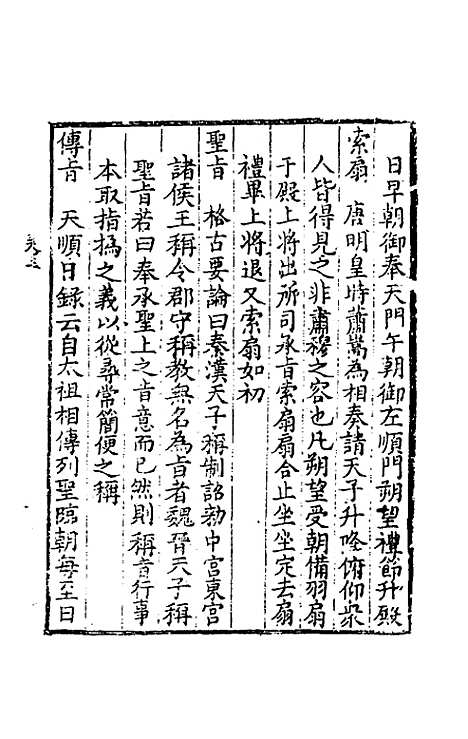 日早朝御奉天門午朝御左順門朔望禮節升殿
索扇　唐明皇時蕭嵩為相奏請天子升降俯仰眾
人皆得見之非肅穆之容也凡朔望受朝備羽扇
于殿上將出所司承旨索扇扇合止坐坐定去扇
禮畢上將退又索扇如初
聖旨　格古要論曰秦漢天子稱制詔勑中宮東宮
諸侯王稱令郡守稱教無名為旨者魏晉天子稱
聖旨若曰奉承聖上之旨意而已然則稱旨行事
本取指撝之義以從尋常簡便之稱
傳旨　天順日錄云自太祖相傳列聖臨朝每至日